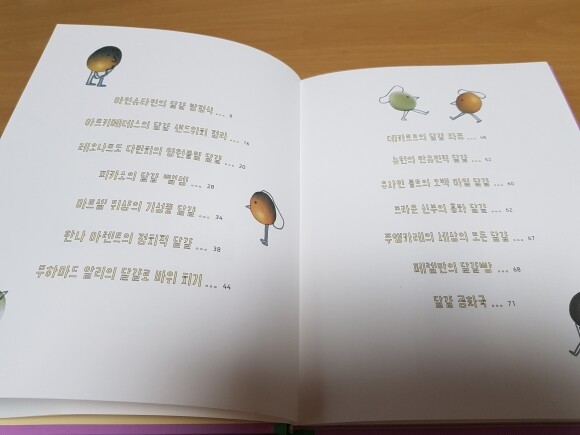 아인슈타인의 달걀 방정식 ... 9
아르키메데스의 달걀 샌드위치 정리 ... 16
레오나르도 다빈치의 달걀 ... 20
피카소의 달걀 ... 28
마르셀 뒤샹의 기성품 달걀 ... 34
한나 아렌트의 정치적 달걀 ... 38
무하마드 알리의 달걀로 바위 치기 ... 44
데카르트의 달걀 좌표 ... 48
뉴턴의 만유인력 달걀 ... 52
우사인 볼트의 달걀 ... 60
브라운 신부의 달걀 ... 62
주앙카레의 세상의 모든 달걀 ... 67
달걀빵 ... 68
달걀 공화국 ... 71